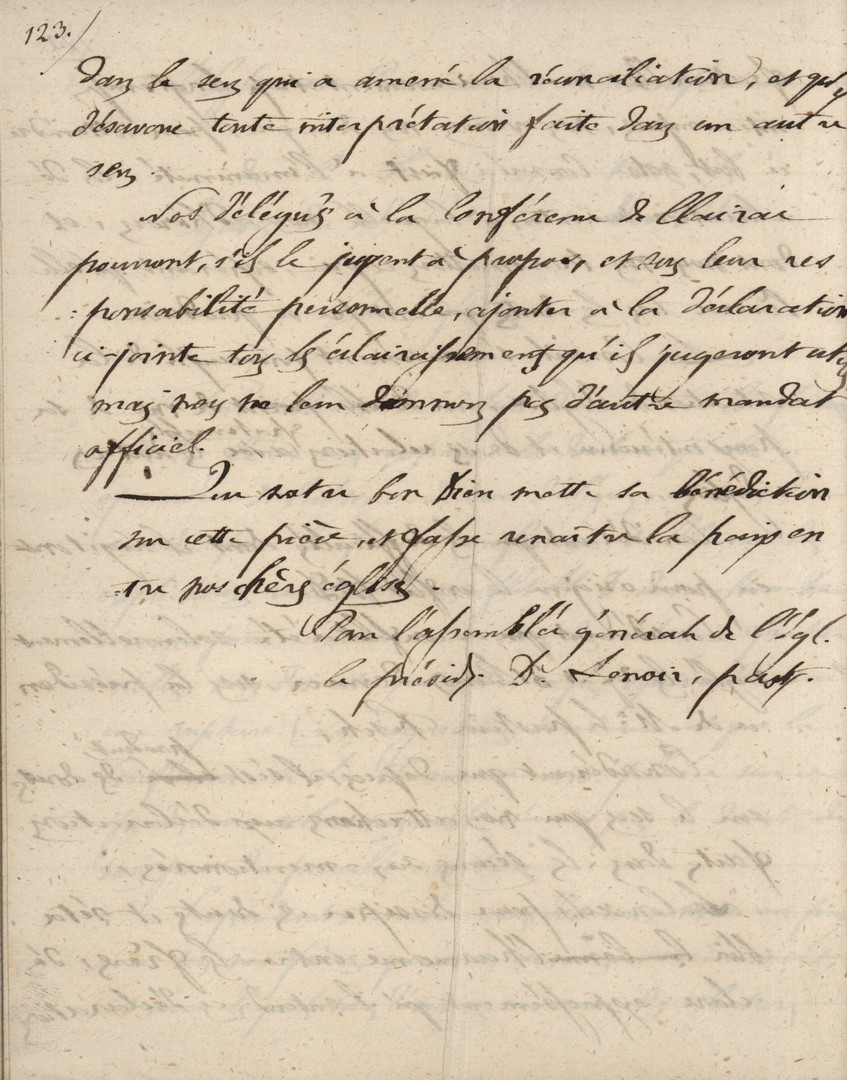 123.
dans le sens qui a amené la réconciliation, et qu'
désavoue toute interprétation faite dans un autre
sens.
Nos délégués à la conférence de Clairac
pourront, s'ils le jugent à propos, et sous leur res
:ponsabilité personnelle, ajouter à la déclaration
ci-jointe tous les éclaircissements qu'ils jugeront utiles
mais nous ne leur donnons pas d'autre mandat
officiel.
Que notre bon Dieu mette sa bénédiction
sur cette pièce, et fasse renaître la paix en
-tre nos chères églises.
Par l'assemblée générale de l'Égl.
le présid. D. Lenoir, past.